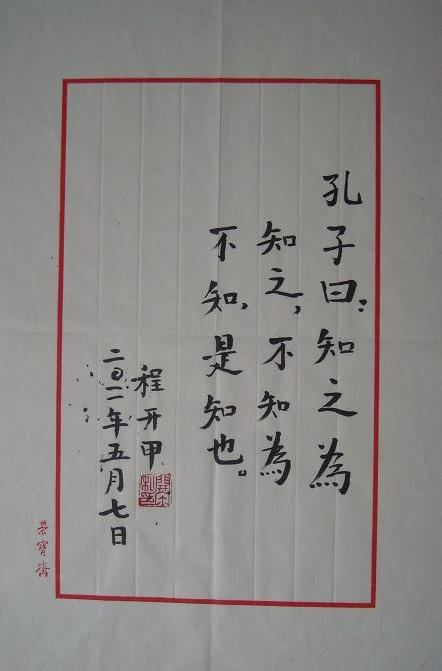 孔子曰：知之為
知之，不知為
不知，是知也。
程开甲
二〇一一年五月七日
榮寶齋